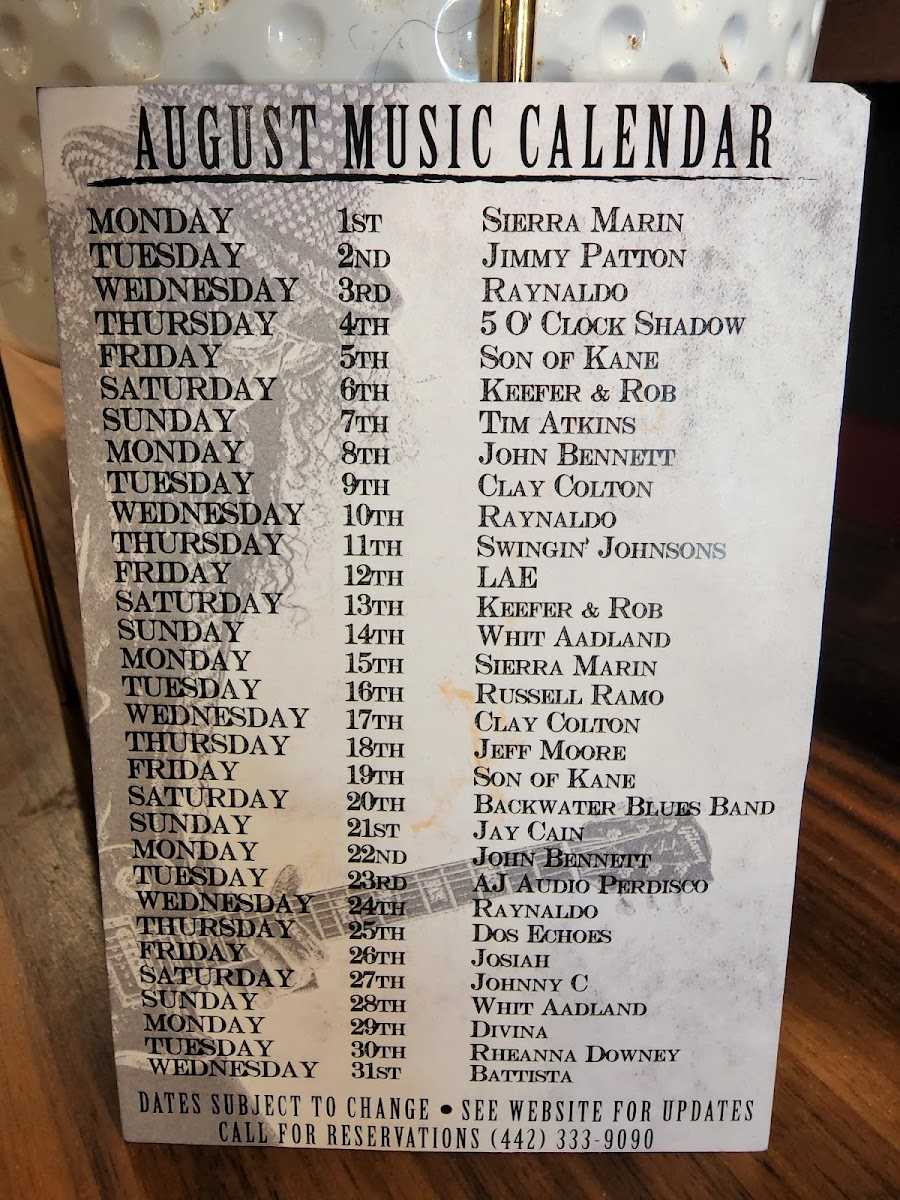 AUGUST MUSIC CALENDAR
MONDAY 1ST SIERRA MARIN
TUESDAY 2ND JIMMY PATTON
WEDNESDAY 3RD RAYNALDO
THURSDAY 4TH 5 O' CLOCK SHADOW
FRIDAY 5TH SON OF KANE
SATURDAY 6TH KEEFER & ROB
SUNDAY 7TH TIM ATKINS
MONDAY 8TH JOHN BENNETT
TUESDAY 9TH CLAY COLTON
WEDNESDAY 10TH RAYNALDO
THURSDAY 11TH SWINGIN' JOHNSONS
FRIDAY 12TH LAE
SATURDAY 13TH KEEFER & ROB
SUNDAY 14TH WHIT AADLAND
MONDAY 15TH SIERRA MARIN
TUESDAY 16TH RUSSELL RAMO
WEDNESDAY 17TH CLAY COLTON
THURSDAY 18TH JEFF MOORE
FRIDAY 19TH SON OF KANE
SATURDAY 20TH BACKWATER BLUES BAND
SUNDAY 21ST JAY CAIN
MONDAY 22ND JOHN BENNETT
TUESDAY 23RD AJ AUDIO PERDISCO
WEDNESDAY 24TH RAYNALDO
THURSDAY 25TH DOS ECHOES
FRIDAY 26TH JOSIAH
SATURDAY 27TH JOHNNY C
SUNDAY 28TH WHIT AADLAND
MONDAY 29TH DIVINA
TUESDAY 30TH RHEANNA DOWNEY
WEDNESDAY 31ST BATTISTA
DATES SUBJECT TO CHANGE • SEE WEBSITE FOR UPDATES
CALL FOR RESERVATIONS (442) 333-9090